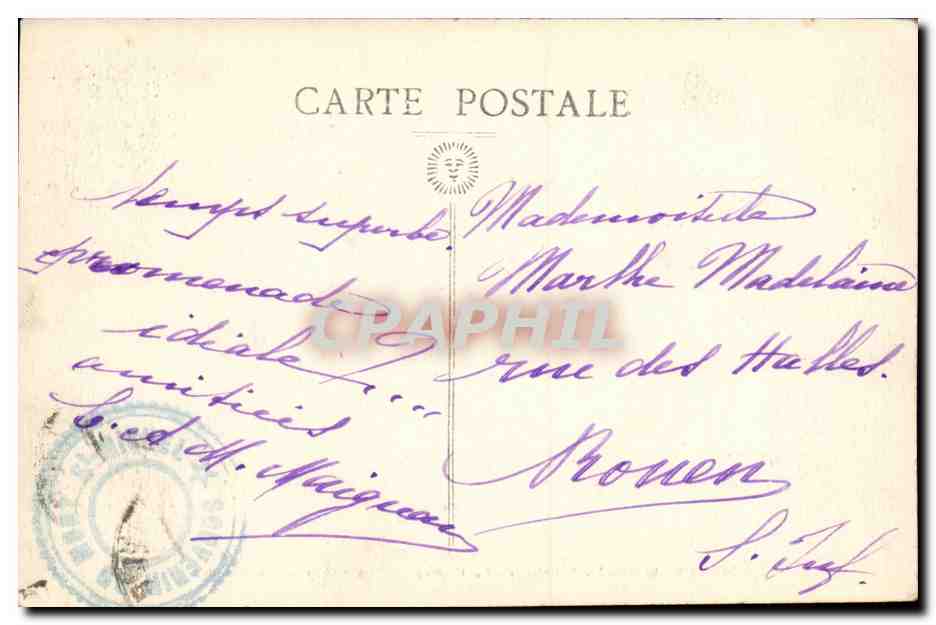 CARTE POSTALE
temps superbe.
promenade
idéale !...
amitiés
C. et M. Maigneau
Mademoiselle
Marthe Madelaine
rue des Halles.
Rouen
S. Inf.
CPARPHIL
MONT ST MICHEL SOUVENIR